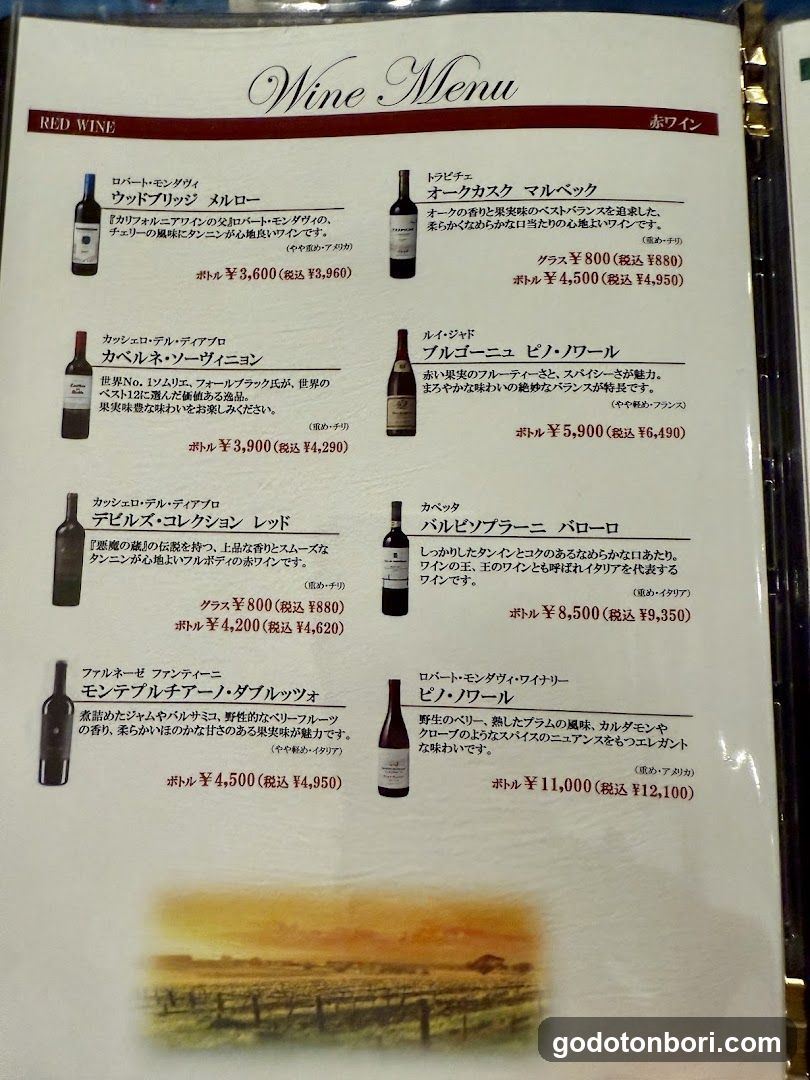 Wine Menu
RED WINE
赤ワイン
ロバート・モンダヴィ
ウッドブリッジ メルロー
『カリフォルニアワインの父』ロバート・モンダヴィの、
チェリーの風味にタンニンが心地良いワインです。
(やや重め・アメリカ)
ボトル ¥3,600(税込 ¥3,960)
カッシェロ・デル・ディアブロ
カベルネ・ソーヴィニョン
世界No. 1ソムリエ、フォールブラック氏が、世界の
ベスト12に選んだ価値ある逸品。
果実味豊な味わいをお楽しみください。
(重め・チリ)
ボトル ¥3,900(税込 ¥4,290)
カッシェロ・デル・ディアブロ
デビルズ・コレクション レッド
『悪魔の蔵』の伝説を持つ、上品な香りとスムーズな
タンニンが心地よいフルボディの赤ワインです。
(重め・チリ)
グラス ¥800(税込 ¥880)
ボトル ¥4,200(税込 ¥4,620)
ファルネーゼ ファンティーニ
モンテプルチアーノ・ダブルッツォ
煮詰めたジャムやバルサミコ、野性的なベリーフルーツ
の香り、柔らかいほのかな甘さのある果実味が魅力です。
(やや軽め・イタリア)
ボトル ¥4,500(税込 ¥4,950)
トラピチェ
オークカスク マルベック
オークの香りと果実味のベストバランスを追求した、
柔らかくなめらかな口当たりの心地よいワインです。
(重め・チリ)
グラス ¥800(税込 ¥880)
ボトル ¥4,500(税込 ¥4,950)
ルイ・ジャド
ブルゴーニュ ピノ・ノワール
赤い果実のフルーティーさと、スパイシーさが魅力。
まろやかな味わいの絶妙なバランスが特長です。
(やや軽め・フランス)
ボトル ¥5,900(税込 ¥6,490)
カベッタ
バルビソプラーニ バローロ
しっかりしたタンインとコクのあるなめらかな口あたり。
ワインの王、王のワインとも呼ばれイタリアを代表する
ワインです。
(重め・イタリア)
ボトル ¥8,500(税込 ¥9,350)
ロバート・モンダヴィ・ワイナリー
ピノ・ノワール
野生のベリー、熟したプラムの風味、カルダモンや
クローブのようなスパイスのニュアンスをもつエレガント
な味わいです。
(重め・アメリカ)
ボトル ¥11,000(税込 ¥12,100)
godotonbori.com